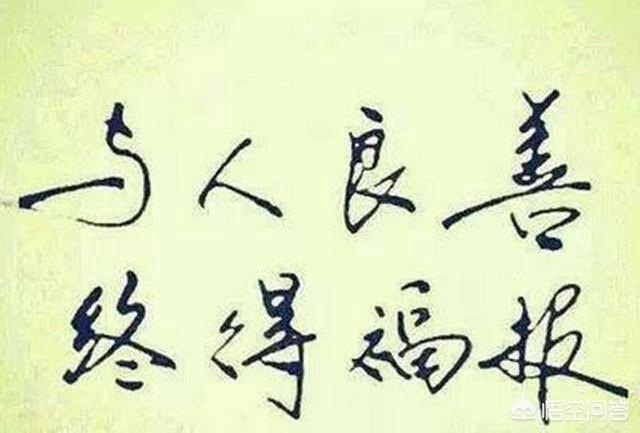 与人良善
终得福报
悟空问答